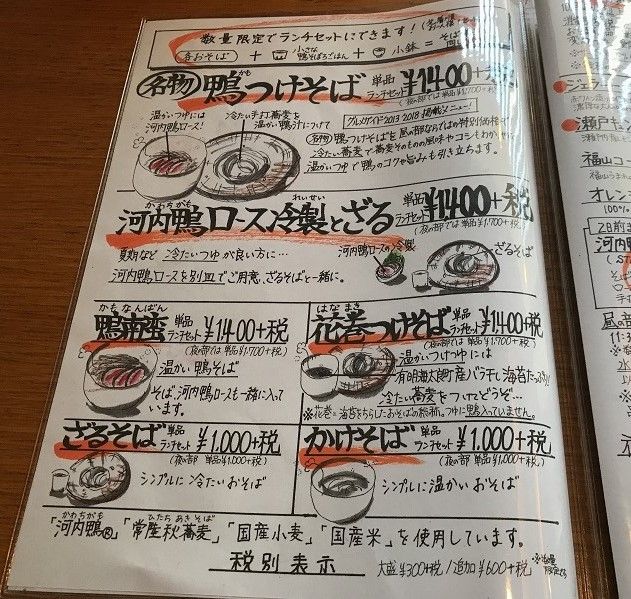 数量限定でランチセットにできます!
各おそば + 小さな鴨そぼろごはん + 小鉢 =
名物 鴨つけそば 単品 ランチセット ¥1,400+
かも
(夜の部では 単品¥1,700+税)
温かいつゆには
河内鴨ロース!
冷たい手打蕎麦を
温かい鴨汁につけて
グルメガイド2013 2018 掲載メニュー!
名物 鴨つけそばを昼の部ならではの特別価格
冷たい蕎麦で蕎麦そのものの風味やコシもわかり
温かいつゆで鴨のコクや旨みも引き立ちます。
かわちがも れいせい
河内鴨ロース冷製とざる 単品 ランチセット ¥1,400+税
(夜の部では 単品¥1,700+税)
夏期など 冷たいつゆが良い方に…
河内鴨ロースを別皿でご用意、ざるそばと一緒に。
河内鴨ロースの冷製
ざるそば
かもなんばん
鴨南蛮 単品 ランチセット ¥1,400+税
(夜の部では 単品¥1,700+税)
温かい鴨そば
そば、河内鴨ロースも一緒に入って
います。
はなまき
花巻つけそば 単品 ランチセット ¥1,400+税
(夜の部では 単品¥1,700+税)
温かいつけつゆには
有明海太良町産バラ干し海苔たっぷり!
冷たい蕎麦をつけてどうぞ…
※花巻=海苔をちらしたおそばの総称。つゆに鴨入っていません。
ざるそば 単品 ランチセット ¥1,000+税
(夜の部 単品¥1,000+税)
シンプルに冷たいおそば
かけそば 単品 ランチセット ¥1,000+税
(夜の部 単品¥1,000+税)
シンプルに温かいおそば
かわちがも ひたちあきそば
「河内鴨®」「常陸秋蕎麦」「国産小麦」「国産米」を使用しています。
税別表示
大盛¥300+税/追加¥600+税
瀬戸
福山コー
オレン
100%
2日前ま
河内
昼の部